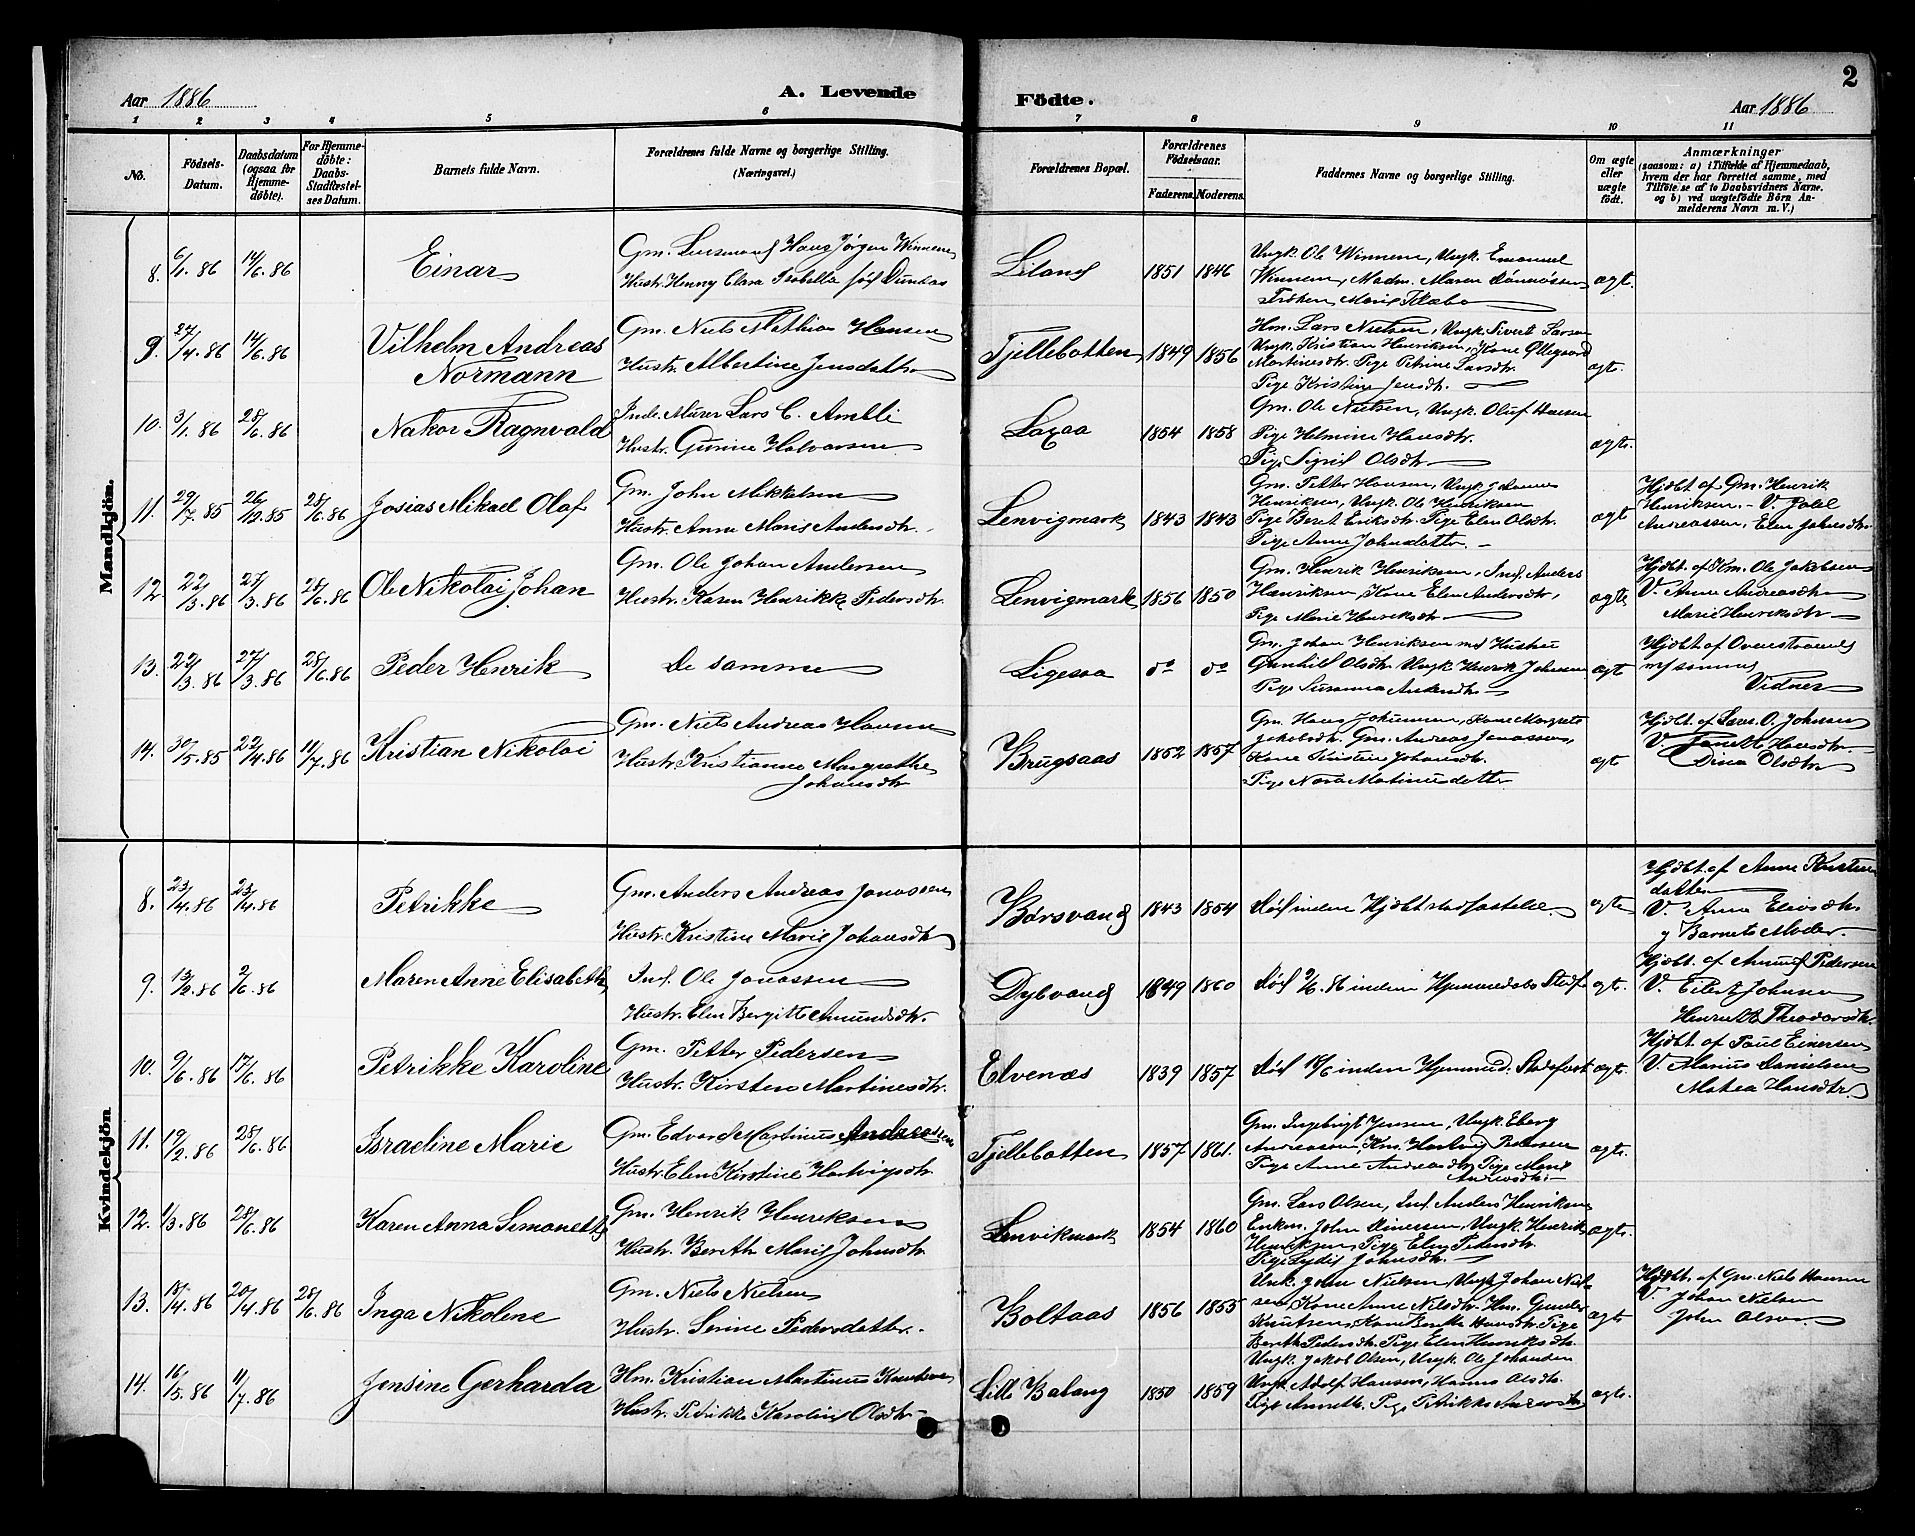 2
Aar 1886 A. Levende Födte. Aar 1886
1 2 3 4 5 6 7 8 9 10 11
No. Födsels-Datum. Daabsdatum (ogsaa for Hjemmedöbte). For Hjemmedöbte: Daabs-Stadfæstelses Datum. Barnets fulde Navn. Forældrenes fulde Navne og borgerlige Stilling. (Næringsvei.) Forældrenes Bopæl. Forældrenes Födselsaar. Faderens. Moderens. Faddernes Navne og borgerlige Stilling. Om ægte eller uægte födt. Anmærkninger (saasom: a) i Tilfælde af Hjemmedaab, hvem der har forrettet samme, med Tilföielse af to Daabsvidners Navne. og b) ved uægtefödte Börn Anmelderens Navn m. V.)
Mandkjön.
8. 6/1.86 14/6.86 Einar
Gm. Hans Jørgen Winnem
Hustr. Henny Clara Isabella fød Dundas
Liland 1851 1846
Ungk. Ole Winnem, Ungk. Emanuel
Winnem, Madm. Maren
Frøken Marie Klæbo
ægt.
9. 27/4.86 14/6.86 Vilhelm Andreas
Normann
Gm. Niels Mathias Hansen
Hustr. Albertine Jensdatter
Fjellebotten 1849 1856
Hm. Lars Nielsen, Ungk. Sivert Larsen
Ungk. Kristian Henriksen, Kone Ollegaard
Martinesdtr. Pige Petrine Larsdtr.
Pige Kristine Jensdtr.
ægt.
10. 3/1.86 28/6.86 Nakor Ragnvald
Ind. Murer Lars C. Ambli
Hustr. Gurine Halvorsen
Laxaa 1854 1858
Gm. Ole Nielsen, Ungk. Oluf Hansen
Pige Helmine Hansdtr.
Pige Sigrid Olsdtr.
ægte.
11. 29/7.85 26/12.85 28/6.86 Josias Mikael Olaf
Gm. John Mikkelsen
Hustr. Anne Marie Andersdtr.
Lenvigmark 1843 1843
Gm. Petter Hansen, Ungk. Johannes
Henriksen, Ungk. Ole Henriksen
Pige Beret Eriksdtr. Pige Elen Olsdtr.
Pige Anne Johnsdatter.
ægt
Hjdbt. af Gm. Henrik
Henriksen. - V. Johl
Andreassen, Elen Johnsdtr.
12. 22/3.86 27/3.86 28/6.86 Ole Nikolai Johan
Gm. Ole Johan Andersen
Hustr. Karen Henrikke Pedersdtr.
Lenvigmark 1856 1850
Gm. Henrik Henriksen, Ind. Anders
Henriksen, Kone Elen Andersdtr.,
Pige Marie Henriksdtr.
ægte
Hjdbt. af Km. Ole Jakobsen
V. Anne Andreasdtr
Marie Henriksdtr
13. 22/3.86 27/3.86 28/6.86 Peder Henrik
De samme
Ligesaa do do
Gm. Johan Henriksen med Hustru
Gunhild Olsdtr. Ungk. Henrik Johnsen
Pige Susanna Andersdtr
ægt
Hjdbt af Ovenstaaende
m/ samme
Vidner
14. 30/5.85 22/4.86 11/7.86 Kristian Nikolai
Gm. Niels Andreas Hansen
Hustr. Kristianne Margrethe
Johansdtr
Brugsaas 1852 1857
Gm. Hans Johnsen, Kone Margrete
Jakobsdtr. Gm. Andreas Jonassen,
Kone Kirstine Johansdtr.
Pige Nora Martinusdatter
ægt
Hjdbt. af Lars O. Johnsen
V. Janette Hansdtr.
Dina Olsdtr
Kvindekjön.
8. 23/4.86 23/4.86 Petrikke
Gm. Anders Andreas Jonassen
Hustr. Kristine Marie Johansdtr
Børsvand 1843 1854
Død inden Hjdbt stadfæstelse.
ægte
Hjdbt af Anne Knutsen
datter
V. Anna Eliasdtr.
og Barnets Moder.
9. 13/2.86 2/6.86 Maren Anne Elisabeth
Ind. Ole Jonassen
Hustr. Elen Bergitte Amundsdtr.
Dybvand 1849 1860
Død 2/6.86 inden Hjemmedaabs Stadf.
ægt.
Hjdbt. af Amund Pedersen
V. Eilert Johnsen
Henriette Theodorsdtr.
10. 9/6.86 17/6.86 Petrikke Karoline
Gm. Petter Pedersen
Hustr. Kirsten Martinesdtr.
Elvenæs 1839 1857
Død 18/6 inden Hjemmed. Stadfæst
ægt.
Hjdbt af Paul Einersen
V. Marius Danielsen
Matea Hansdtr.
11. 19/2.86 28/6.86 Israeline Marie
Gm. Edvard Martinus Andreassen
Hustr. Elen Kirstine Hartvigsdtr.
Fjellebotten 1857 1861.
Gm. Ingebrigt Jensen, Ungk. Eberg
Andreassen, Km. Hartvig Pedersen
Pige Anne Andreasdtr, Pige Marie
Andreasdtr.
ægt.
12. 1/3.86 28/6.86 Karen Anna Simonette
Gm. Henrik Henriksen
Hustr. Bereth Marie Johnsdtr.
Lenvikmark 1854 1860
Gm. Lars Olsen, Ind. Anders Henriksen
Enkm. John Einersen, Ungk. Henrik
Henriksen, Pige Elen Pedersdtr.
Pige Lydie Johnsdtr.
ægt.
13. 18/4.86 20/4.86 28/6.86 Inga Nikoline
Gm. Niels Nielsen
Hustr. Serine Pedersdatter.
Boltaas 1856 1855
Ungk. John Nielsen, Ungk. Johan Nielsen,
Kone Anne Nilsdtr. Hm. Gunder
Knutsen, Kone Berithe Hansdtr. Pige
Berith Pedersdtr. Pige Elen Henriksdtr.
ægt
Hjdbt. af Gm. Niels Hansen
V. Johan Nielsen
John Olsen
14. 16/5.86 11/7.86 Jensine Gerharda
Hm. Kristian Martinus Knutsen
Hustr. Petrikke Karoline Olsdtr.
Lille Balang 1850 1859
Ungk. Jakob Olsen, Ungk. Ole Johansen
Ungk. Adolf Hansen, Hanna Olsdtr.
Pige Annette, Pige Petrikke Andreasdtr
ægt.